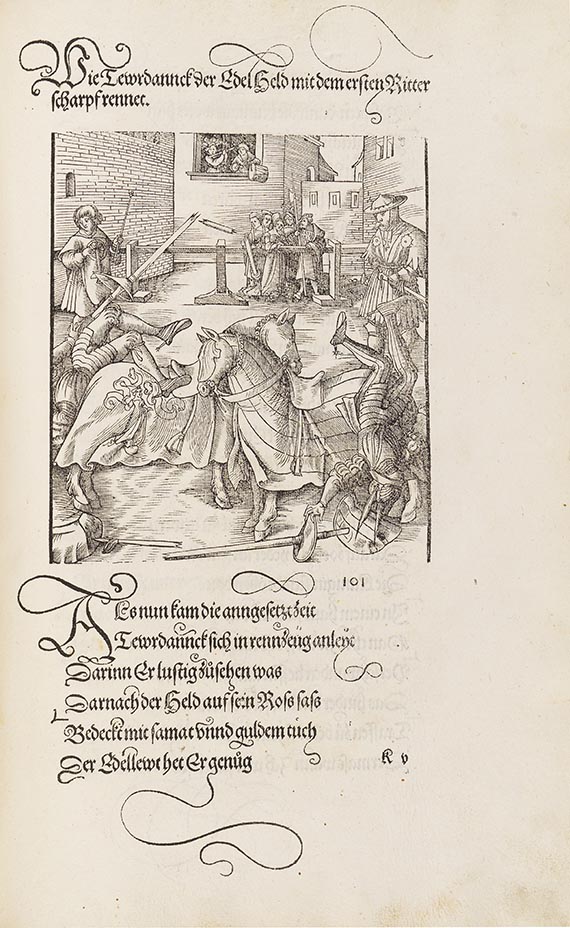 Wie Tewrdannck der Edel Held mit dem ersten Ritter
scharpf rennet.
101
Als nun kam die anngesetzt zeit
Tewrdannck sich in rennzeüg anleyt
Darinn Er lustig zůsehen was
Darnach der Held auf sein Ross sass
Bedeckt mit samat vnnd guldem tuch
Der Edellewt het Er genůg
K v